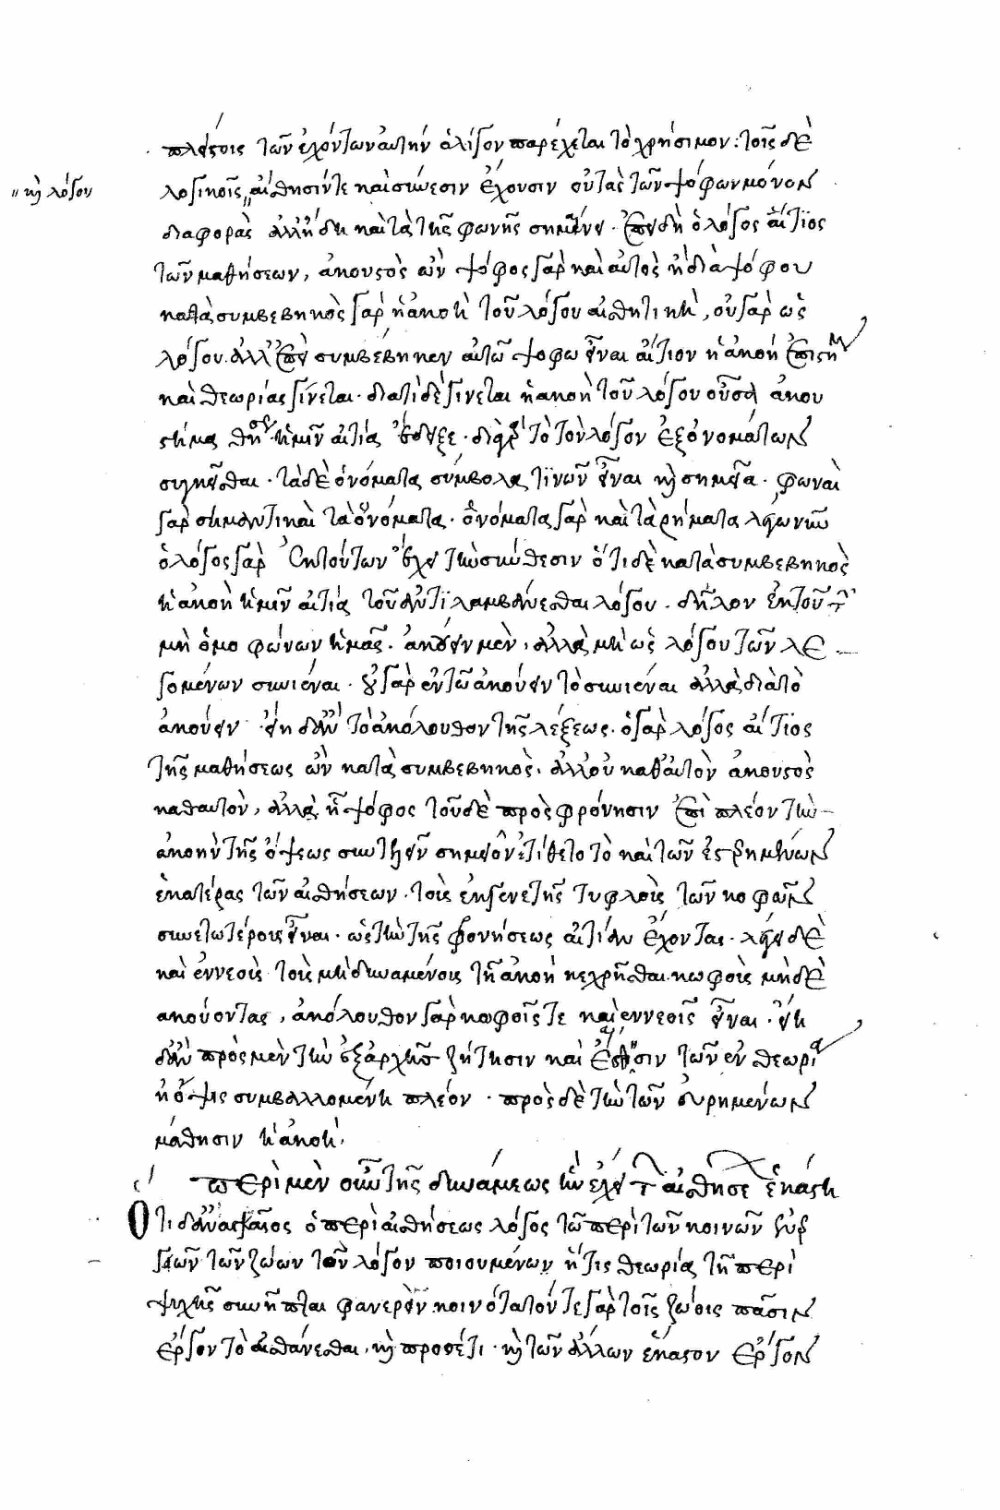 πλείστοις τῶν ἐχόντων αὐτὴν ὀλίγον παρέχεται τὸ χρήσιμον: τοῖς δὲ
καὶ λόγον
λογικοῖς αἴσθησίν τε καὶ σύνεσιν ἔχουσιν οὐ τὰς τῶν ψόφων μόνον
διαφορὰς ἀλλ' ἤδη καὶ τὰ τῆς φωνῆς σημαίνει. ἐπειδὴ ὁ λόγος αἴτιος
τῶν μαθήσεων, ἀκουστὸς ὢν ψόφος γὰρ καὶ αὐτὸς ἢ διὰ ψόφου
κατὰ συμβεβηκὸς γὰρ ἡ ἀκοὴ τοῦ λόγου αἰσθητικὴ, οὐ γὰρ ὡς
λόγου. ἀλλ' ἐπεὶ συμβέβηκεν αὐτῶ ψόφω εἶναι αἴτιον ἡ ἀκοὴ ἐπιστήμ
καὶ θεωρίας γίνεται. διατί δὲ γίνεται ἡ ἀκοὴ τοῦ λόγου οὖσα ἀκου
στικὴ μαθήσεων ἡμῖν αἰτία ἔδειξε. διὰ τὸ τὸν λόγον ἐξ ὀνομάτων
συγκεῖσθαι. τὰ δὲ ὀνόματα σύμβολα τινῶν εἶναι καὶ σημεῖα. φωναὶ
γὰρ σημαντικαὶ τὰ ὀνόματα. ὀνόματα γὰρ καὶ τὰ ῥήματα λέγων νῦν
ὁ λόγος γὰρ ἐκ τούτων ἔχει τὴν σύνθεσιν ὅτι δὲ κατὰ συμβεβηκὸς
ἡ ἀκοὴ ἡμῖν αἰτία τοῦ ἀντιλαμβάνεσθαι λόγου. δῆλον ἐκ τοῦ τ
μὴ ὁμοφώνων ἡμᾶς. ἀκούειν μὲν, ἀλλὰ μὴ ὡς λόγου τῶν λε
γομένων συνιέναι. οὐ γὰρ ἐν τῶ ἀκούειν τὸ συνιέναι ἀλλὰ διὰ τὸ
ἀκούειν εἴη δ' ἂν τὸ ἀκόλουθον τῆς λέξεως. ὁ γὰρ λόγος αἴτιος
τῆς μαθήσεως ὢν κατὰ συμβεβηκὸς. ἀλλ' οὐ καθ' αὑτὸν ἀκουστὸς
καθ' αυτὸν, ἀλλὰ ᾗ ψόφος τοῦ δὲ πρὸς φρόνησιν ἐπὶ πλέον τὴν
ἀκοὴν τῆς ὄψεως συντελεῖν σημεῖον ἐτίθετο τὸ καὶ τῶν ἐστερημένων
ἑκατέρας τῶν αἰσθήσεων. τοὺς ἐκ γενετῆς τυφλοὺς τῶν κωφῶν
συνετωτέρους εἶναι. ὡς τὴν τῆς φρονήσεως αἰτίαν ἔχοντας. λέγει δὲ
καὶ ἐννεοὺς τοὺς μὴ δυναμένους τῆ ἀκοῆ κεχρῆσθαι κωφοὺς μηδὲ
ἀκούοντας, ἀκόλουθον γὰρ κωφοῖς τε καὶ ἐννεοῖς εἶναι. εἴη
δ' ἂν πρὸς μὲν τὴν ἐξαρχῆς ζήτησιν καὶ εὕρεσιν τῶν ἐν θεωρία
ἡ ὄψις συμβαλλομένη πλέον. πρὸς δὲ τὴν τῶν εὑρημένων
μάθησιν ἡ ἀκοή.
περὶ μὲν οὖν τῆς δυνάμεως ἣν ἔχει τ αἰσθήσε ἑκάστη
Ὅτι δ' ἀναγκαῖος ὁ περὶ αἰσθήσεως λόγος τῶ περὶ τῶν κοινῶν ἔργ
τῶν τῶν ζώων τὸν λόγον ποιουμένων ἥτις θεωρία τῆ περὶ
ψυχῆς συνῆπται φανερὸν κοινότατόν τε γὰρ τοῖς ζώοις πᾶσιν
ἔργον τὸ αἰσθάνεσθαι, καὶ προσέτι. καὶ τῶν ἄλλων ἕκαστον ἔργον